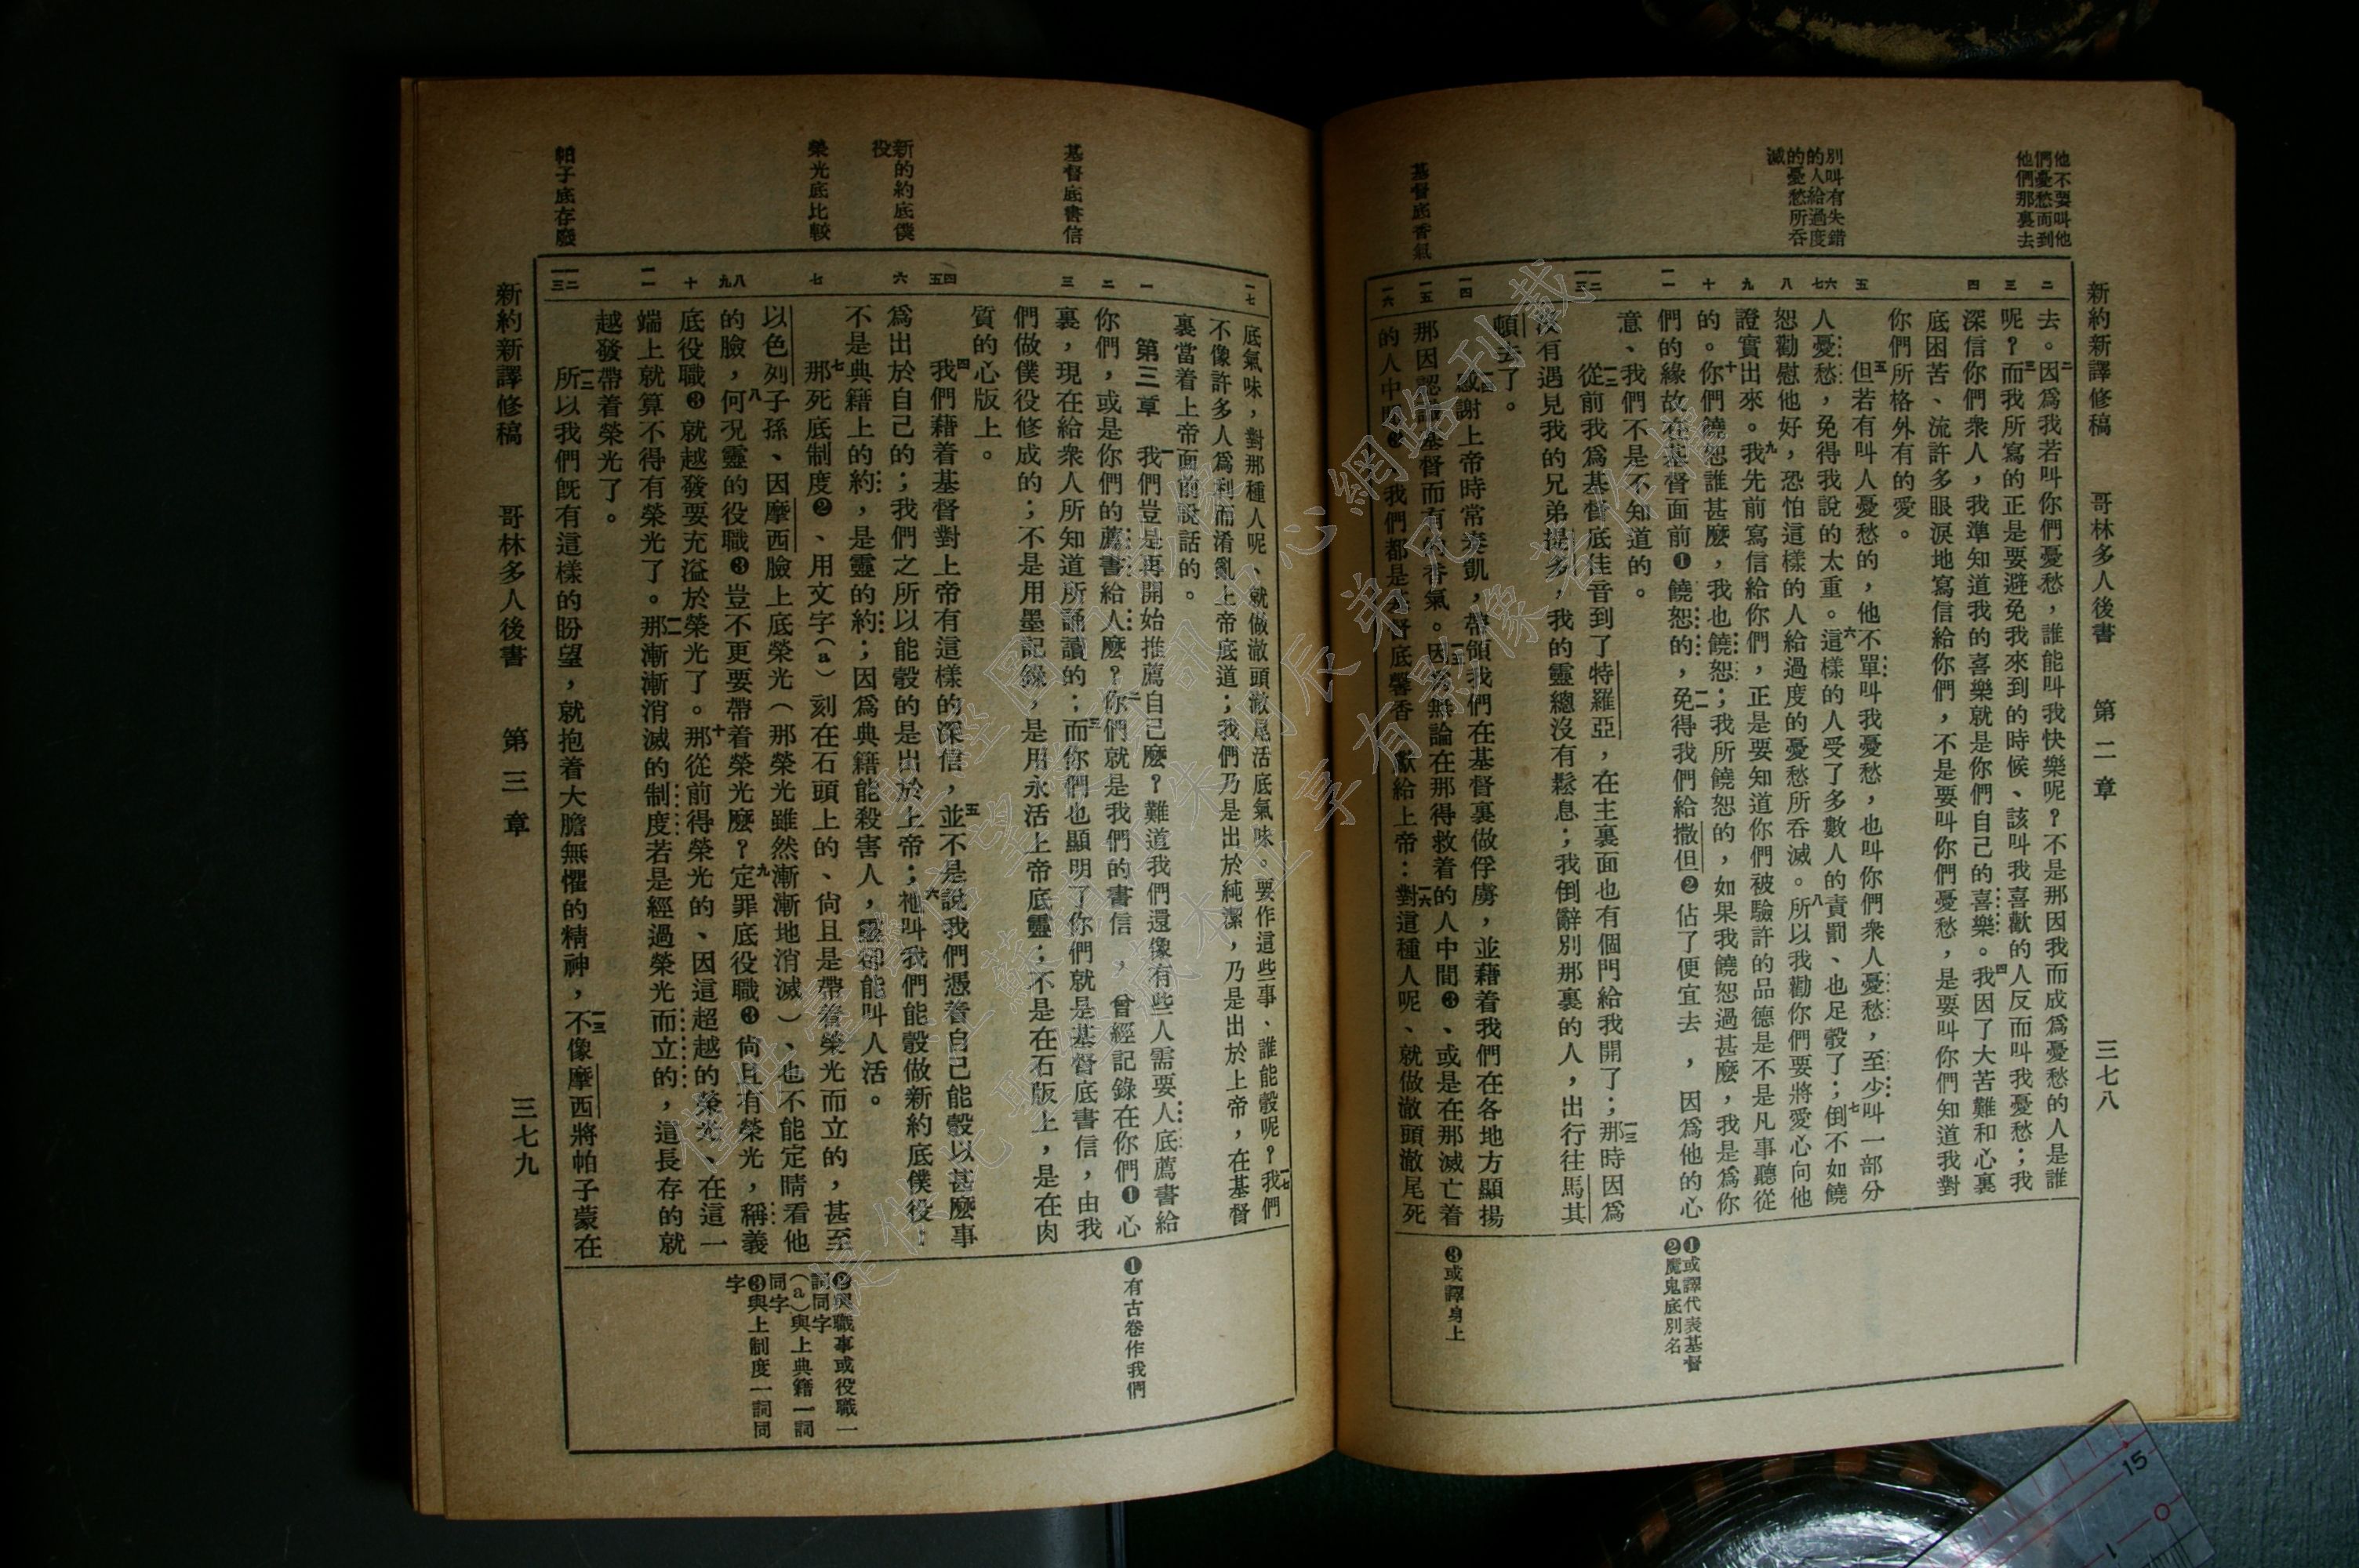 新約新譯修稿　哥林多人後書　第二章　三七八
他不要叫他
們憂愁而到
他們那裏去
別叫有失錯
的人給過度
的憂愁所吞
滅
基督底香氣
二　三　四　五　六七　八　九　十　一一　一二一三　一四　一五　一六
去。二因爲我若叫你們憂愁，誰能叫我快樂呢？不是那因我而成爲憂愁的人是誰
呢？三而我所寫的正是要避免我來到的時候、該叫我喜歡的人反而叫我憂愁；我
深信你們衆人，我準知道我的喜樂就是你們自己的喜樂。四我因了大苦難和心裏
底困苦、流許多眼淚地寫信給你們，不是要叫你們憂愁，是要叫你們知道我對
你們所格外有的愛。
五但若有叫人憂愁的，他不單叫我憂愁，也叫你們衆人憂愁，至少叫一部分
人憂愁，免得我說的太重。六這樣的人受了多數人的責罰、也足彀了；七倒不如饒
恕勸慰他好，恐怕這樣的人給過度的憂愁所吞滅。八所以我勸你們要將愛心向他
證實出來。九我先前寫信給你們，正是要知道你們被驗許的品德是不是凡事聽從
的。十你們饒恕誰甚麼，我也饒恕；我所饒恕的，如果我饒恕過甚麼，我是爲你
們的緣故在基督面前❶饒恕的，一一免得我們給撒但❷佔了便宜去，因爲他的心
意、我們不是不知道的。
一二從前我爲基督底佳音到了特羅亞，在主裏面也有個門給我開了；一三那時因爲
沒有遇見我的兄弟提多，我的靈總沒有鬆息；我倒辭別那裏的人，出行往馬其
頓去了。
一四感謝上帝時常奏凱，帶領我們在基督裏做俘虜，並藉着我們在各地方顯揚
那因認識基督而有的香氣。一五因爲無論在那得救着的人中間❸、或是在那滅亡着
的人中間❸、我們都是基督底馨香、獻給上帝：一六對這種人呢、就做澈頭澈尾死
❶或譯代表基督
❷魔鬼底別名
❸或譯身上
基督底書信
新的約底僕
役
榮光底比較
帕子底存廢
一七　一　二　三　四五　六　七　八九　十　一一　一二一三
底氣味，對那種人呢、就做澈頭澈尾活底氣味。要作這些事、誰能彀呢？一七我們
不像許多人爲利而淆亂上帝底道；我們乃是出於純潔，乃是出於上帝，在基督
裏當着上帝面前說話的。
第三章　一我們豈是再開始推薦自己麼？難道我們還像有些人需要人底薦書給
你們，或是你們的薦書給人麼？二你們就是我們的書信，曾經記錄在你們❶心
裏，現在給衆人所知道所誦讀的；三而你們也顯明了你們就是基督底書信，由我
們做僕役修成的；不是用墨記錄，是用永活上帝底靈；不是在石版上，是在肉
質的心版上。
四我們藉着基督對上帝有這樣的深信，五並不是說我們憑着自己能彀以甚麼事
爲出於自己的；我們之所以能彀的是出於上帝；六祂叫我們能彀做新約底僕役：
不是典籍上的約，是靈的約；因爲典籍能殺害人，靈卻能叫人活。
七那死底制度❷、用文字（a）刻在石頭上的、尙且是帶着榮光而立的，甚至
以色列子孫、因摩西臉上底榮光（那榮光雖然漸漸地消滅）、也不能定睛看他
的臉，八何況靈的役職❸豈不更要帶着榮光麼？九定罪底役職❸尙且有榮光，稱義
底役職❸就越發要充溢於榮光了。十那從前得榮光的、因這超越的榮光、在這一
端上就算不得有榮光了。一一那漸漸消滅的制度若是經過榮光而立的，這長存的就
越發帶着榮光了。
一二所以我們旣有這樣的盼望，就抱着大膽無懼的精神，一三不像摩西將帕子蒙在
❶有古卷作我們
❷與職事或役職一
詞同字
（a）與上典籍一詞
同字
❸與上制度一詞同
字
新約新譯修稿　哥林多人後書　第三章　三七九
15